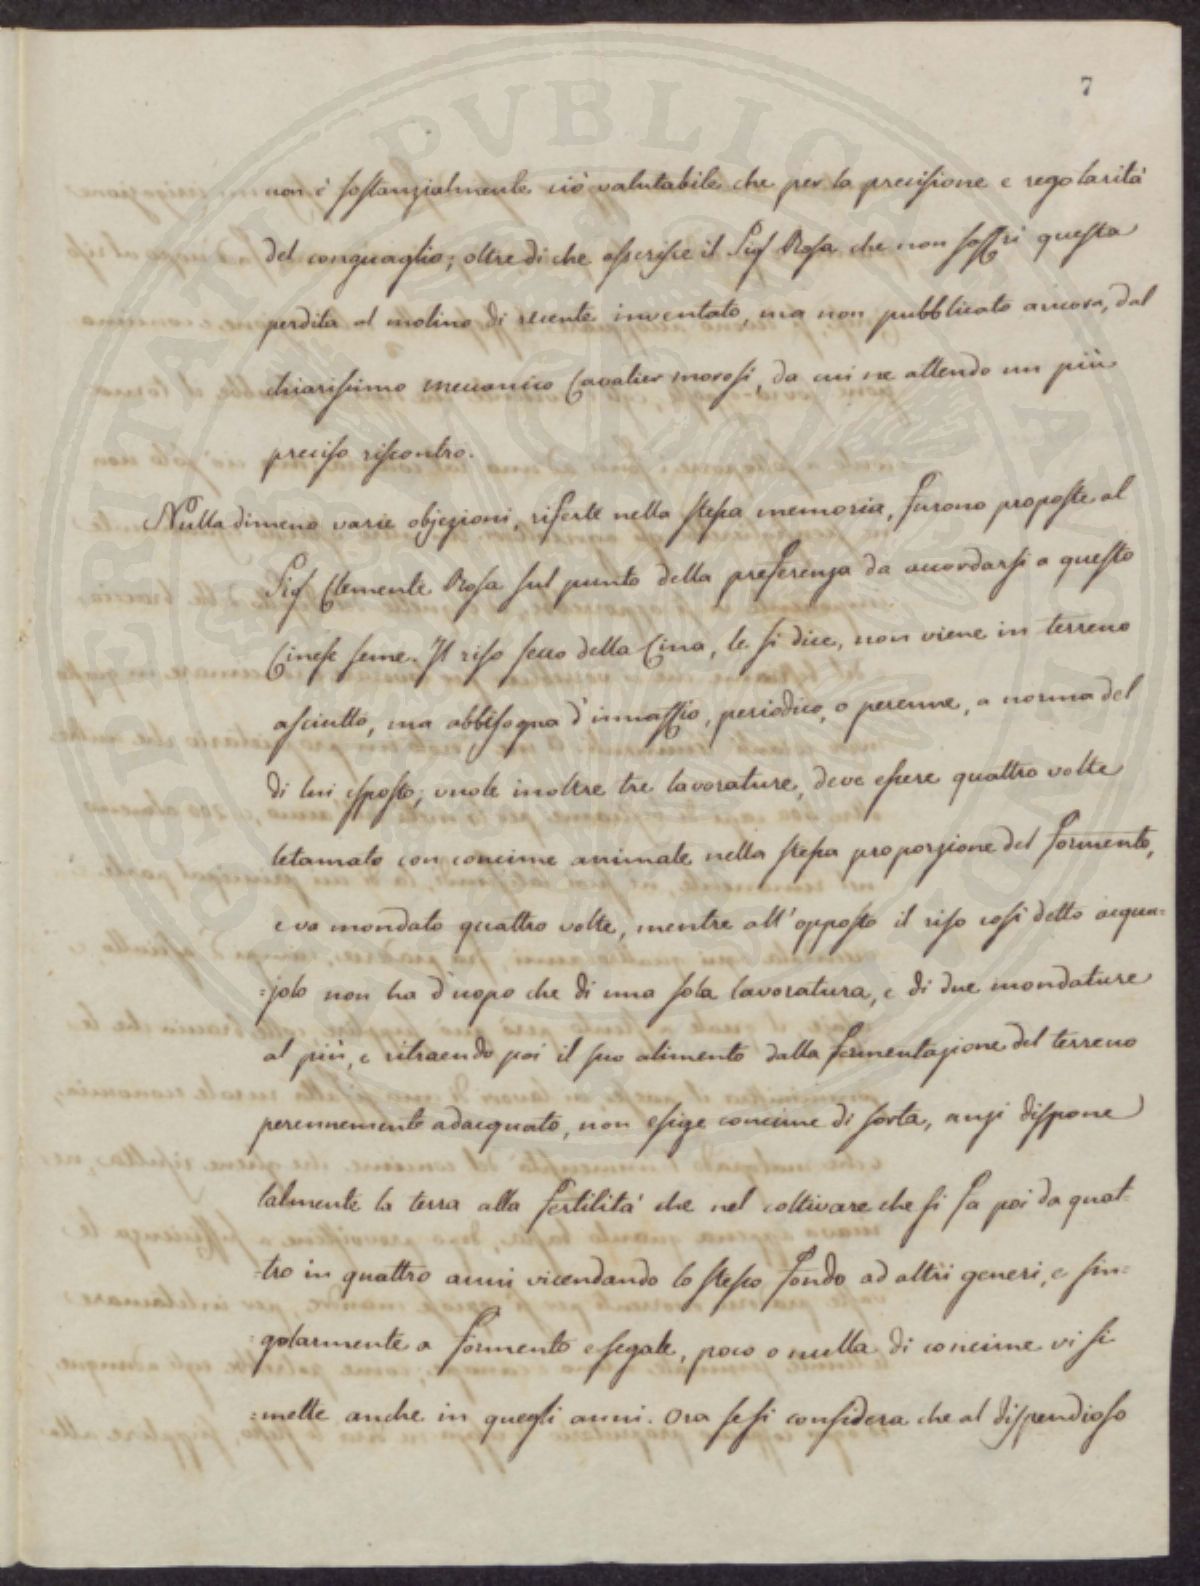 7
non è sostanzialmente ciò valutabile che per la precisione e regolarità
del conguaglio; oltre di che asserisce il Sig.r Rosa che non soffrì questa
perdita al molino di recente inventato, ma non pubblicato ancora, dal
chiarissimo meccanico Cavalier Morosi, da cui ne attendo un più
preciso riscontro.
Nulladimeno varie objezioni, riferte nella stessa memoria, furono proposte al
Sig.r Clemente Rosa sul punto della preferenza da accordarsi a questo
Cinese seme. Il riso secco della Cina, le si dice, non viene in terreno
asciutto, ma abbisogna d'innaffio, periodico, o perenne, a norma del
di lui esposto; vuole inoltre tre lavorature, deve essere quattro volte
letamato con concime animale nella stessa proporzione del formento,
e va mondato quattro volte, mentre all'opposto il riso così detto acqua=
=jolo non ha d'uopo che di una sola lavoratura, e di due mondature
al più, e ritraendo poi il suo alimento dalla fermentazione del terreno
perennemente adacquato, non esige concime di sorta, anzi dispone
talmente la terra alla fertilità che nel coltivare che si fa poi da quat=
=tro in quattro anni vicendando lo stesso fondo ad altri generi, e sin=
=golarmente a formento e segale, poco o nulla di concime vi si
=mette anche in quegli anni. Ora se si considera che al dispendioso
PUBLICA